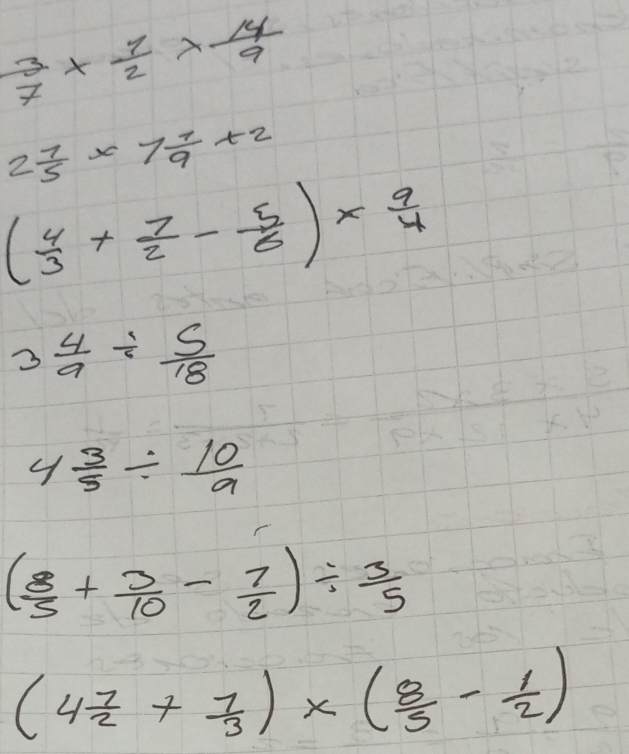 3/7 × 1/2 × 14/9
2 1/5 × 1 1/9 × 2
(4/3 + 1/2 - 5/6) × 9/4
3 4/9 ÷ 5/18
4 3/5 ÷ 10/9
(8/5 + 3/10 - 1/2) ÷ 3/5
(4 1/2 + 1/3) × (8/5 - 1/2)